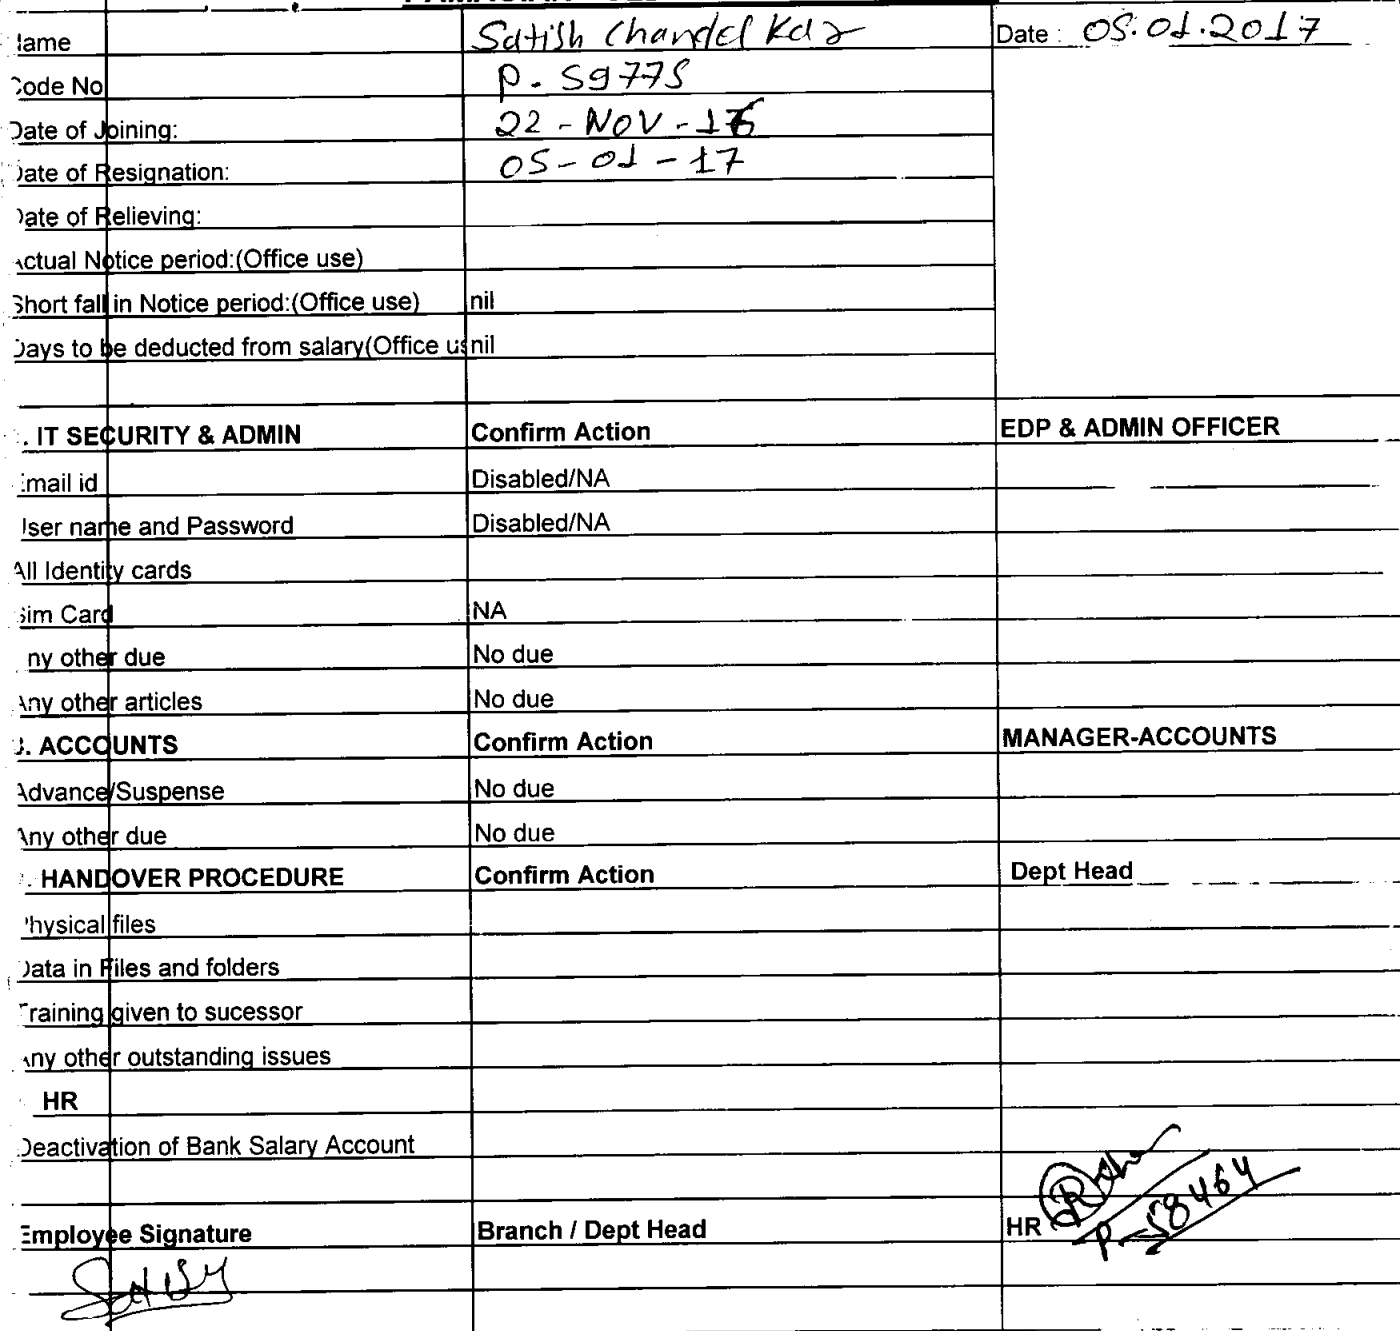 Name Satish Chandel Date : 05.01.2017
Code No P. 59775
Date of Joining: 22 - NOV - 16
Date of Resignation: 05 - 01 - 17
Date of Relieving:
Actual Notice period:(Office use)
Short fall in Notice period:(Office use) nil
Days to be deducted from salary(Office us nil
. IT SECURITY & ADMIN Confirm Action EDP & ADMIN OFFICER
Email id Disabled/NA
User name and Password Disabled/NA
All Identity cards
Sim Card NA
Any other due No due
Any other articles No due
. ACCOUNTS Confirm Action MANAGER-ACCOUNTS
Advance/Suspense No due
Any other due No due
. HANDOVER PROCEDURE Confirm Action Dept Head
Physical files
Data in Files and folders
Training given to sucessor
Any other outstanding issues
HR
Deactivation of Bank Salary Account
Employee Signature Branch / Dept Head HR P-58464